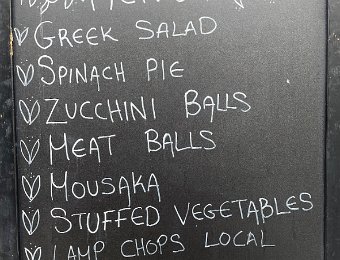 GREEK SALAD
SPINACH PIE
ZUCCHINI BALLS
MEAT BALLS
MOUSAKA
STUFFED VEGETABLES
LAMP CHOPS LOCAL